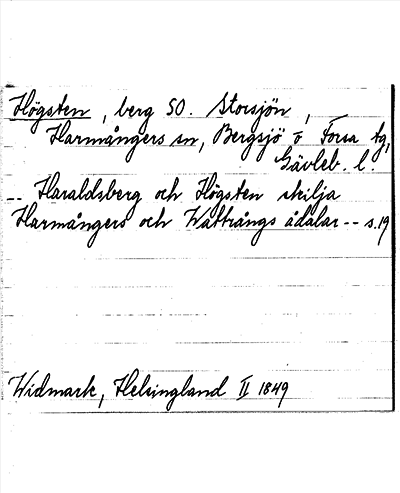 Högsten, berg SO. Storsjön,
Harmångers sn, Bergsjö o Forsa tg,
Gävleb. l.
-- Haraldsberg och Högsten skilja
Harmångers och Wattrångs ådalar -- s.19
Widmark, Helsingland II 1849